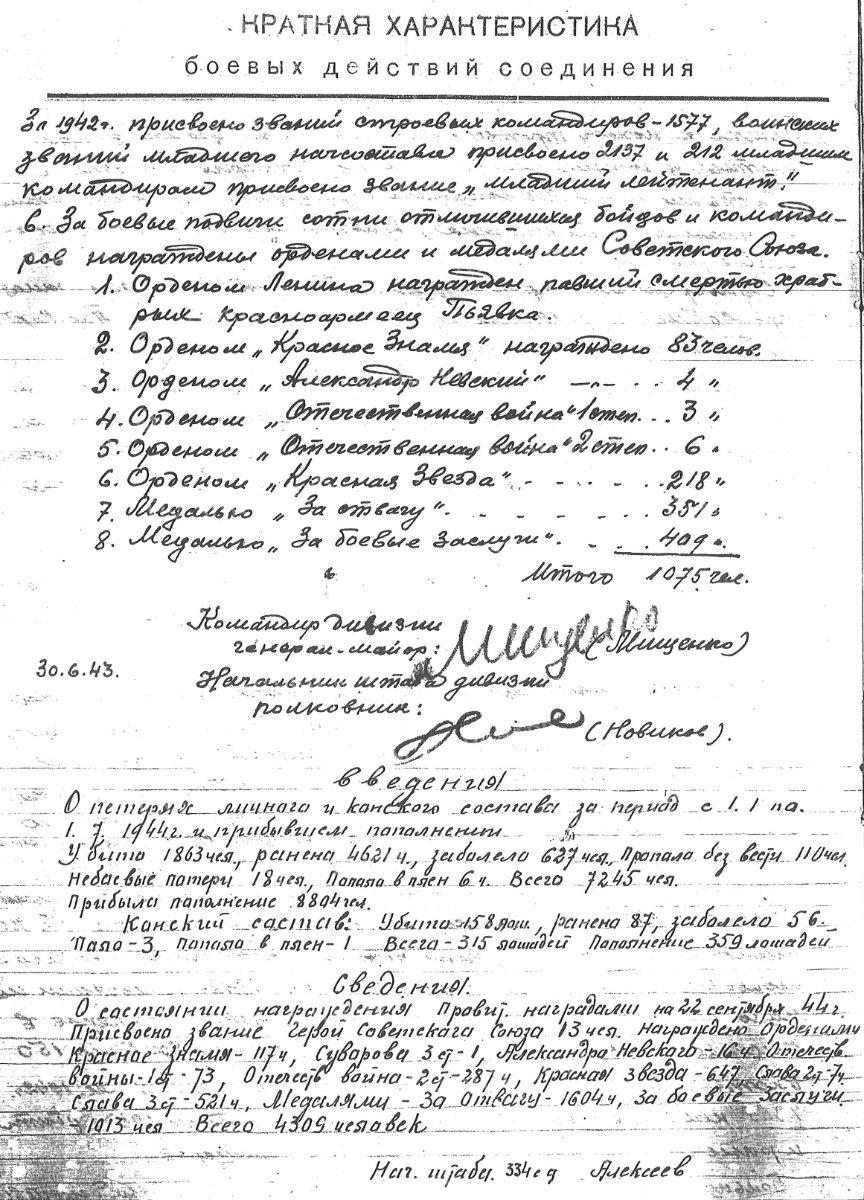 КРАТКАЯ ХАРАКТЕРИСТИКА
боевых действий соединения
За 1942г. присвоено званий строевых командиров - 1577, воинских
званий младшего начсостава присвоено 2137 и 212 младшим
командирам присвоено звание „младший лейтенант."
6. За боевые подвиги сотни отличившихся бойцов и команди-
ров награждены орденами и медалями Советского Союза.
1. Орденом Ленина награжден павший смертью храб-
рых красноармеец Пьявка.
2. Орденом „Красное Знамя" награждено 83 челов.
3. Орденом „Александр Невский" —"— . . 4 "
4. Орденом „Отечественная война" 1 степ. . . 3 "
5. Орденом „Отечественная война" 2 степ. . . 6 "
6. Орденом „Красная Звезда" - - - - . . 218 "
7. Медалью „За отвагу". - - - - . . 351 "
8. Медалью „За боевые заслуги". - . . 409 "
Итого 1075 чел.
Командир дивизии
генерал-майор: Мищенко (Мищенко)
30.6.43.
Начальник штаба дивизии
полковник:
(Новиков).
введения
О потерях личнага и канского состава за период с 1.1 па.
1. 7. 1944г. и прибывшем папалнении
Убито 1863 чел., ранена 4621 ч., забалело 627 чел., Прапала без вести 110 чел.
Небаевые патери 18 чел., Папала в плен 6 ч. Всего 7245 чел.
Прибыла папалнение 8804 чел.
Канский састав: Убито 158 лош., ранена 87, забалело 56.
Пало - 3, папала в плен - 1 Всега - 315 лошадей Папалнение 359 лошадей
Сведения.
О састаянии награждения Правит. наградами на 22 сентября 44г
Присвоено звание Герой Саветскага Саюза 13 чел. Награждено Орденами
Краснае знамя - 117 ч, Суварова 3 ст - 1, Александра Невского - 16 ч Отечеств
войны - 1 ст - 73, Отечеств война - 2 ст - 287 ч, Красная звезда - 647 Слава 2 ст - 7 ч
Слава 3 ст - 521 ч, Медалями - За Отвагу - 1604 ч, За баевые Заслуги
- 1913 чел Всего 4309 человек
Нач. штаба. 334 сд Алексеев